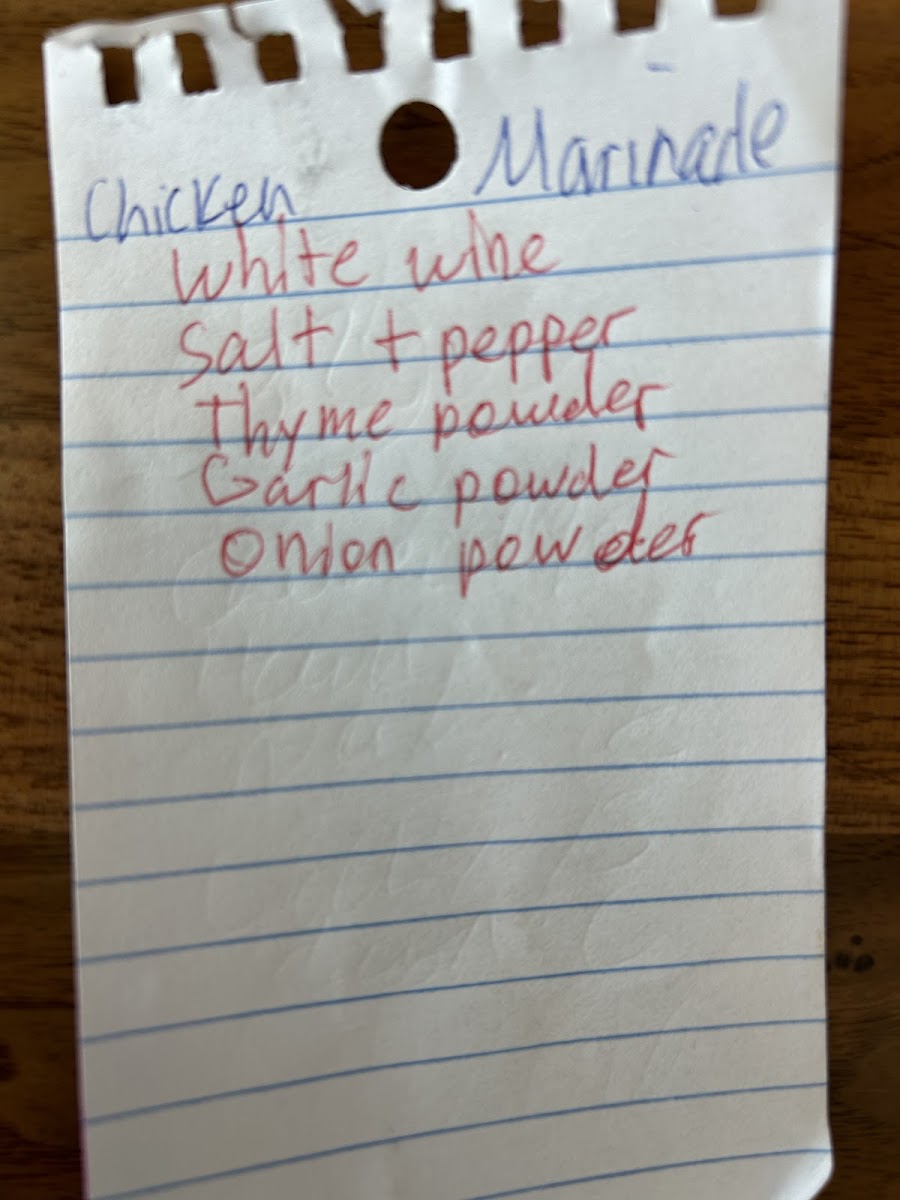 Chicken Marinade
White wine
Salt + pepper
Thyme powder
Garlic powder
Onion powder